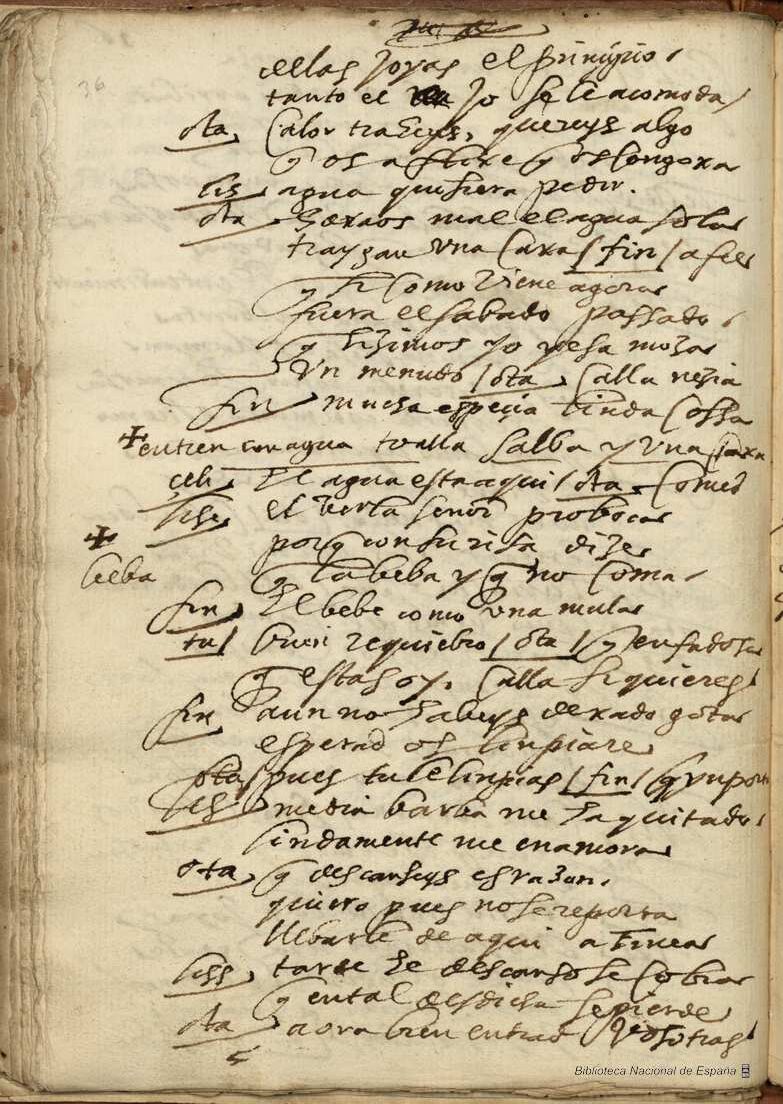 36
dellas joyas el prinçipio
tanto el yo se le acomoda
ota calor traheys, quereys algo
q os afloxe q os congoxa
lis agua quisiera pedir.
ota haraos mal el agua sola
traygan una caxa / fin / a fee
q si como viene agora
fuera el sabado passado
q hizimos yo y esa moza
un menudo / ota calla neçia
fin mucha espeçia linda cossa
entren con agua toalla salba y una caxa
çeli El agua esta aqui / ota comed
lise el verla señor proboca
porq con su risa dize
q la beba y q no coma
beba
fin El bebe como una mula
tu buen requiebro / ota / q enfadosa
q estas oy. calla si quieres
fin aun no habeys dexado gota
esperad os limpiare
ota pues tu le limpias / fin / q ynporta
lis media barba me ha quitado
lindamente me enamora
ota q descanseys es razon.
quiero pues no se reporta
llebarle de aqui a finea
liss tarde he descanso se cobra
q en tal desdicha se pierde
ota aora bien entrad vosotras
Biblioteca Nacional de España